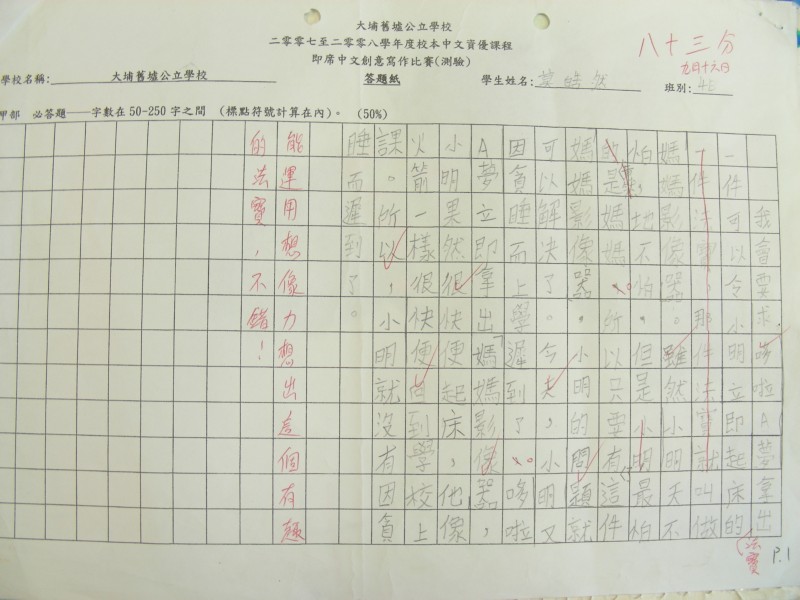 大埔舊墟公立學校
二零零七至二零零八學年度校本中文資優課程
即席中文創意寫作比賽(測驗)
八十三分
九月十六日
學校名稱: 大埔舊墟公立學校
答題紙
學生姓名: 皓然
班別: 4E
甲部 必答題——字數在50-250字之間 (標點符號計算在內)。 (50%)
我會要求哆啦A夢拿出
一件可以令小明立即起床的
法寶
件法寶，那件法寶就叫做
媽媽影像器。雖然小明天不
怕，地不怕，但是小明最怕
的是媽媽。所以只要有這件
媽媽影像器，小明的問題就
可以解決了。今天，小明又
因貪睡而上學遲到了。哆啦
A夢立即拿出「媽媽影像器，
小明果然很快便起床，他像
火箭一樣，很快便回到學校上
課。所以，小明就沒有因貪
睡而遲到了。
能運用想像力想出這個有趣
的法寶，不錯！
P.1